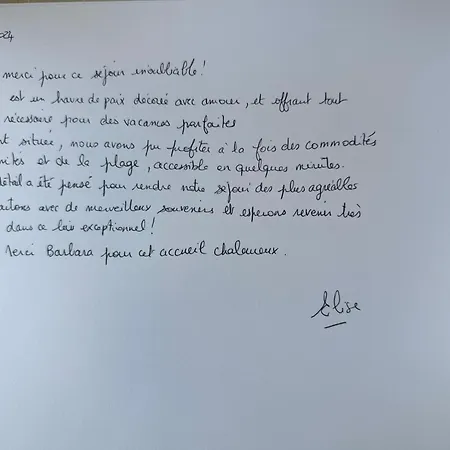 024
merci pour ce séjour inoubliable!
est un havre de paix décoré avec amour, et offrant tout
nécessaire pour des vacances parfaites
nt située, nous avons pu profiter à la fois des commodités
mités et de la plage, accessible en quelques minutes.
détail a été pensé pour rendre notre séjour des plus agréables
artons avec de merveilleux souvenirs et espérons revenir très
dans ce lieu exceptionnel!
Merci Barbara pour cet accueil chaleureux.
Elise